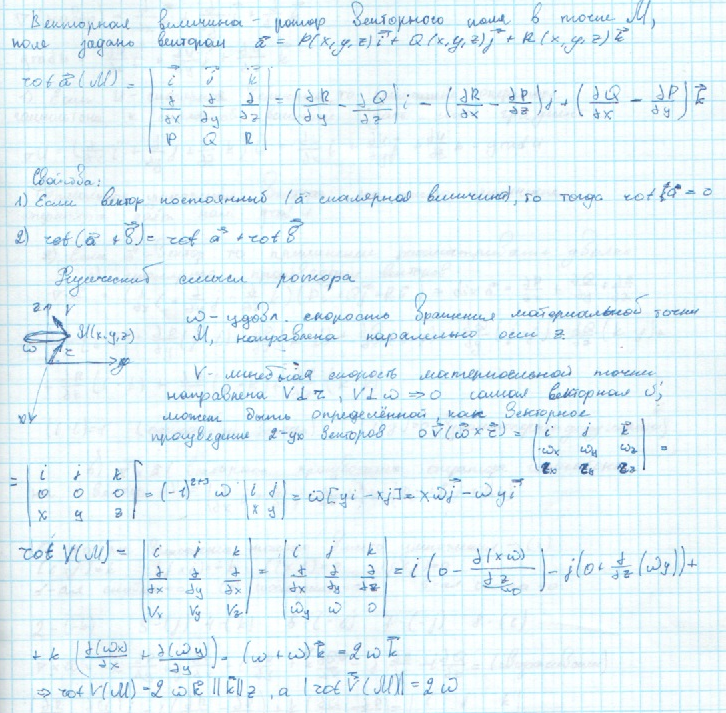 Векторная величина – ротор векторного поля в точке M,
поле задано вектором a⃗ = P(x,y,z)i⃗ + Q(x,y,z)j⃗ + R(x,y,z)k⃗
rot a⃗(M) = | i⃗ j⃗ k⃗ ; ∂/∂x ∂/∂y ∂/∂z ; P Q R | = (∂R/∂y − ∂Q/∂z)i − (∂R/∂x − ∂P/∂z)j + (∂Q/∂x − ∂P/∂y)k⃗
Свойства:
1) Если вектор постоянный (a⃗ скалярная величина), то тогда rot a⃗ = 0
2) rot(a⃗ + b⃗) = rot a⃗ + rot b⃗
Физический смысл ротора
z V M(x,y,z) ω r y x
ω – скорость вращения материальной точки
M, направлена паралельно оси z.
V – линейная скорость материальной точки
направлена V⊥r, V⊥ω ⇒ самая векторная
может быть определённой, как векторное
произведение 2-ух векторов V⃗(ω⃗×r⃗) = | i j k⃗ ; ωx ωy ωz ; rx ry rz | =
= | i j k ; 0 0 0 ; x y z | = (-1)²⁺³ ω | i j ; x y | = ω[yi − xj] = xωj⃗ − ωyi⃗
rot V(M) = | i j k ; ∂/∂x ∂/∂y ∂/∂x ; Vx Vy Vz | = | i j k ; ∂/∂x ∂/∂y ∂/∂z ; ωy ω 0 | = i(0 − ∂(xω)/∂z) − j(0 + ∂/∂z(ωy)) +
+ k (∂(ωx)/∂x + ∂(ωy)/∂y) = (ω + ω)k⃗ = 2ωk⃗
⇒ rot V(M) = 2ωk⃗ || k⃗ || z, а |rot V⃗(M)| = 2ω